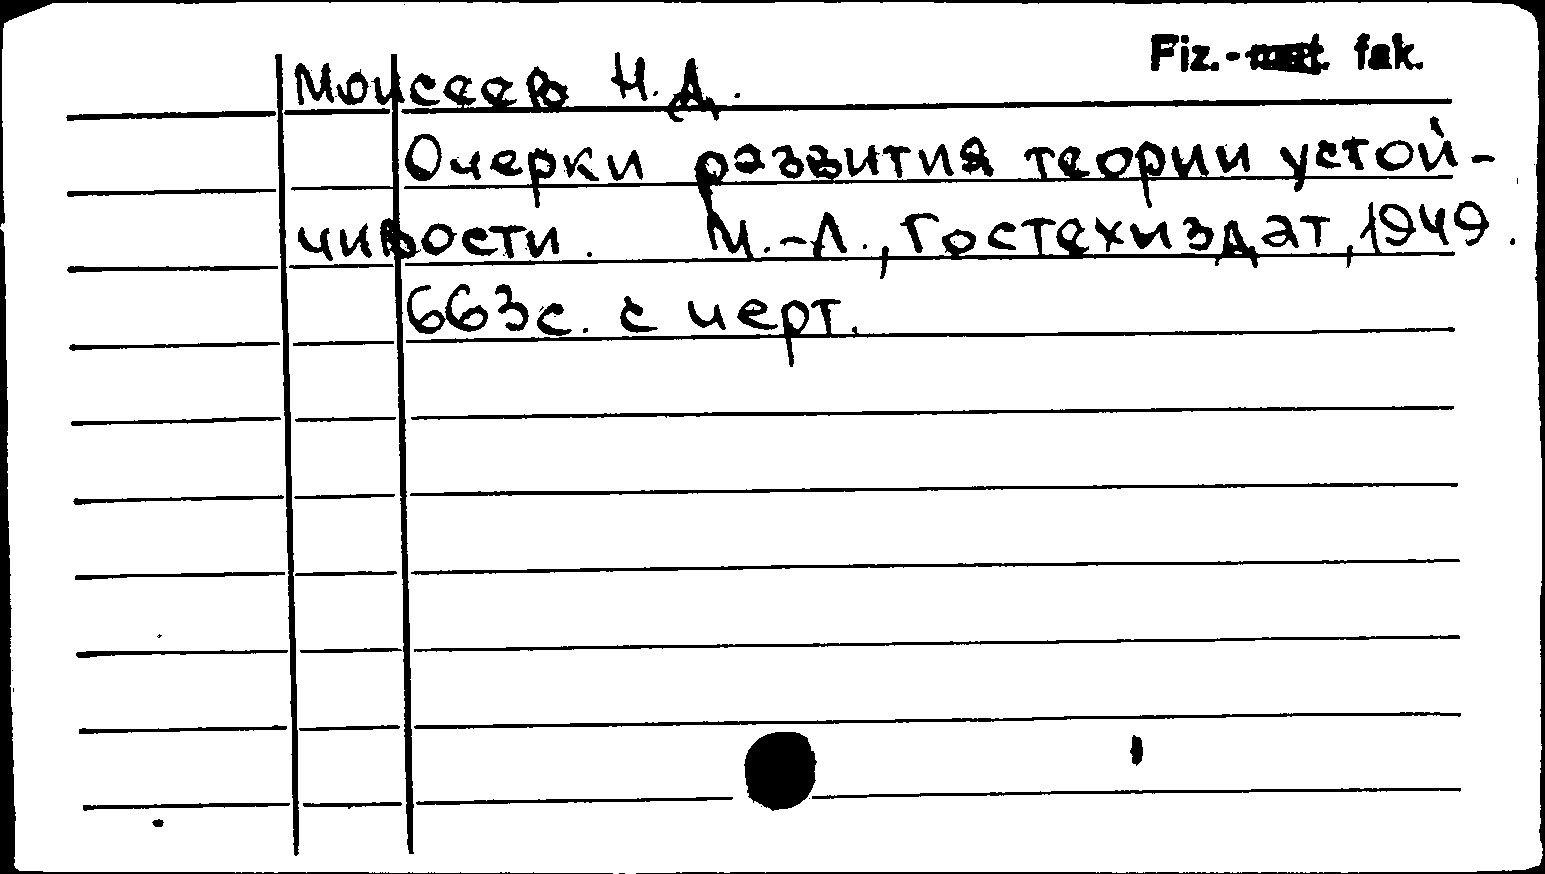 Fiz.-mat. fak.
Моисеев Н.Д.
Очерки развития теории устой-
чивости. М.-Л., Гостехиздат, 1949.
663с. с черт.